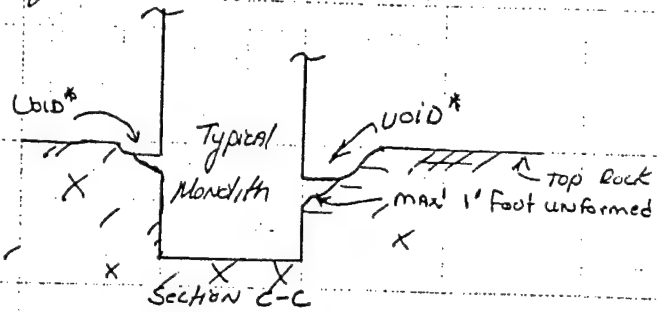 VOID*
VOID*
Typical
Monolith
Top Rock
MAX' 1' Foot UNFORMED
Section C-C